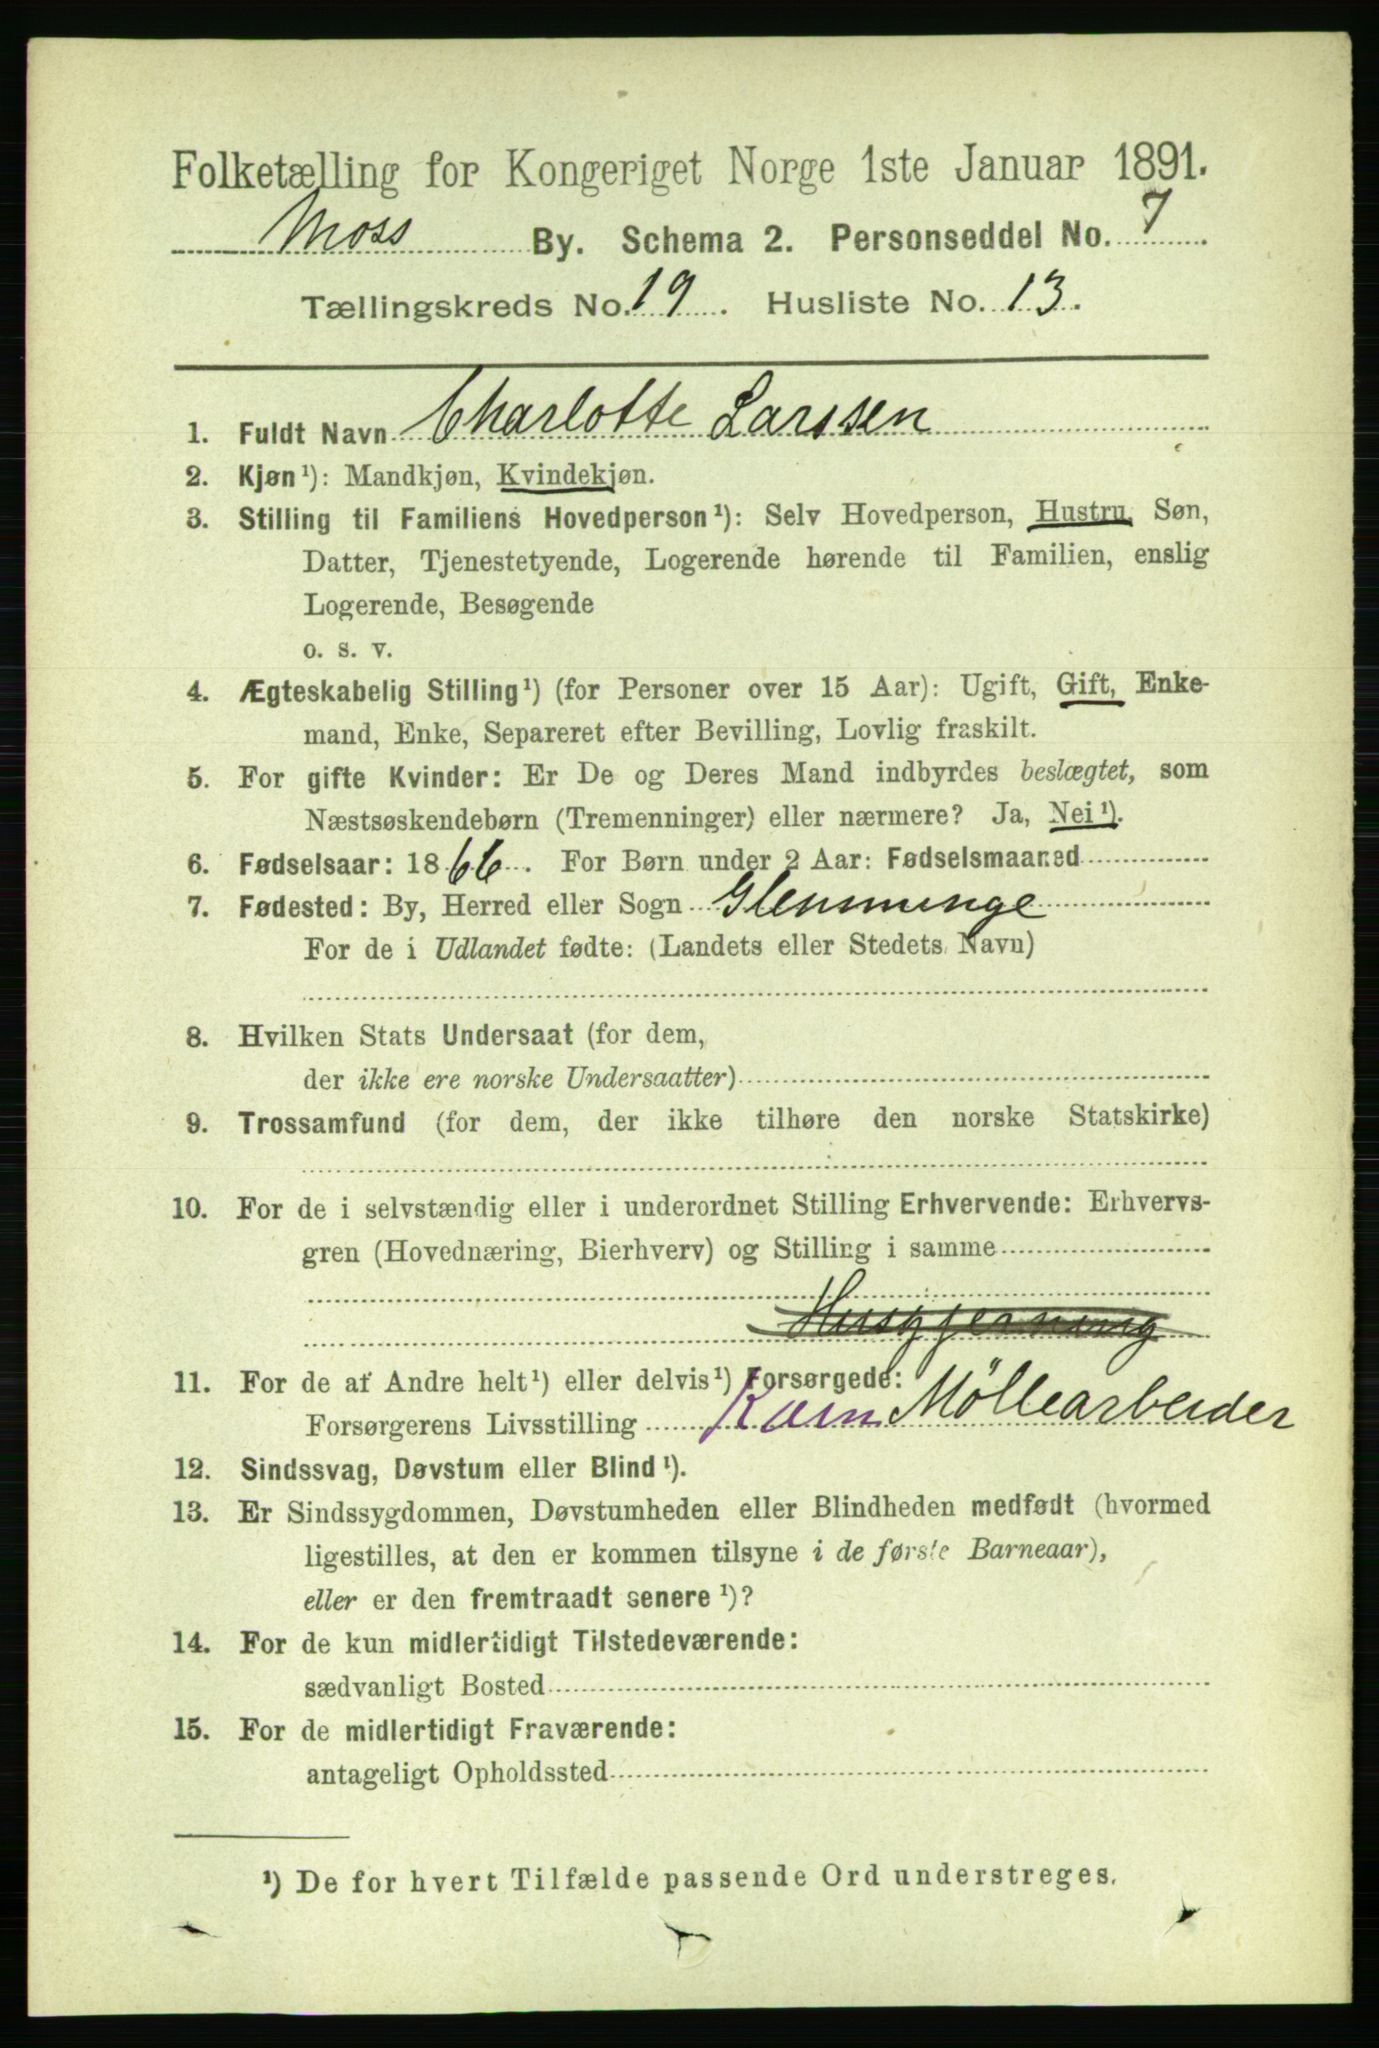 Folketælling for Kongeriget Norge 1ste Januar 1891.
Moss By. Schema 2. Personseddel No. 7
Tællingskreds No. 19. Husliste No. 13.
1. Fuldt Navn Charlotte Larssen
2. Kjøn¹): Mandkjøn, Kvindekjøn.
3. Stilling til Familiens Hovedperson¹): Selv Hovedperson, Hustru, Søn,
Datter, Tjenestetyende, Logerende hørende til Familien, enslig
Logerende, Besøgende
o. s. v.
4. Ægteskabelig Stilling¹) (for Personer over 15 Aar): Ugift, Gift, Enke-
mand, Enke, Separeret efter Bevilling, Lovlig fraskilt.
5. For gifte Kvinder: Er De og Deres Mand indbyrdes beslægtet, som
Næstsøskendebørn (Tremenninger) eller nærmere? Ja, Nei¹).
6. Fødselsaar: 1866. For Børn under 2 Aar: Fødselsmaaned
7. Fødested: By, Herred eller Sogn Glemminge
For de i Udlandet fødte: (Landets eller Stedets Navn)
8. Hvilken Stats Undersaat (for dem,
der ikke ere norske Undersaatter)
9. Trossamfund (for dem, der ikke tilhøre den norske Statskirke)
10. For de i selvstændig eller i underordnet Stilling Erhvervende: Erhvervs-
gren (Hovednæring, Bierhverv) og Stilling i samme
Husgjerning
11. For de af Andre helt¹) eller delvis¹) Forsørgede:
Forsørgerens Livsstilling Korn Møllearbeider
12. Sindssvag, Døvstum eller Blind¹).
13. Er Sindssygdommen, Døvstumheden eller Blindheden medfødt (hvormed
ligestilles, at den er kommen tilsyne i de første Barneaar),
eller er den fremtraadt senere¹)?
14. For de kun midlertidigt Tilstedeværende:
sædvanligt Bosted
15. For de midlertidigt Fraværende:
antageligt Opholdssted
¹) De for hvert Tilfælde passende Ord understreges.